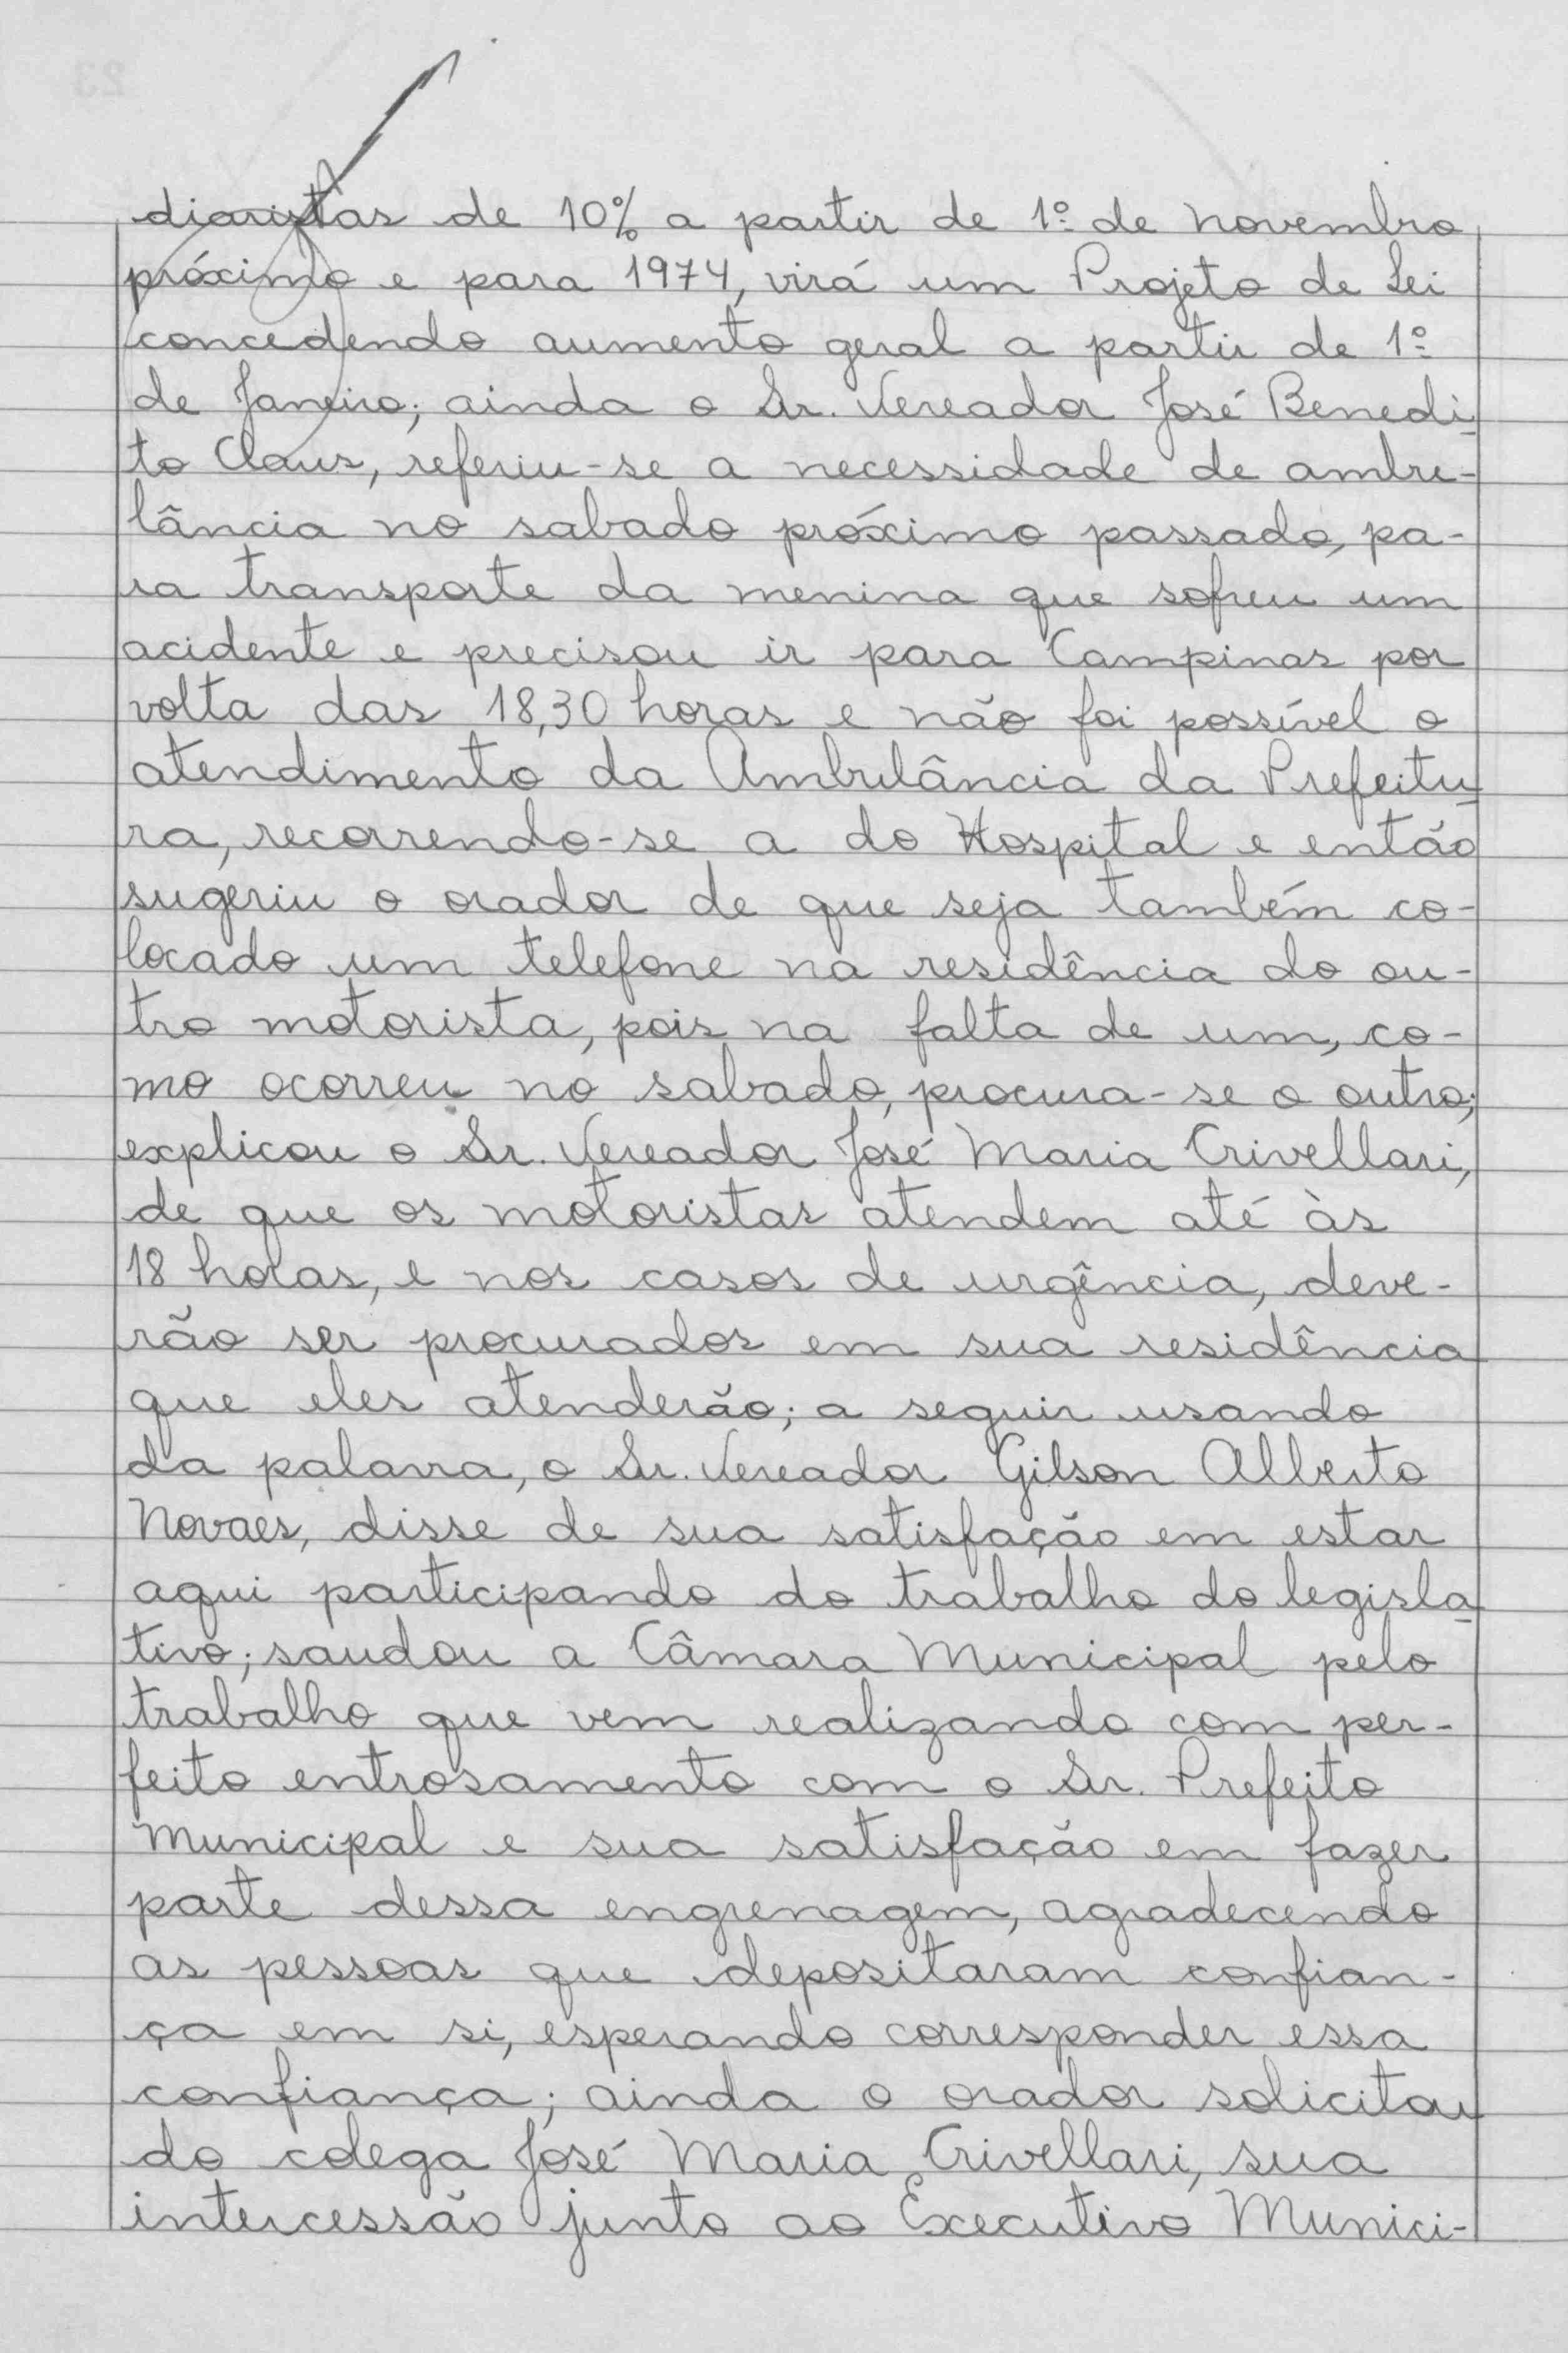 diaristas de 10% a partir de 1º de novembro
próximo e para 1974, virá um Projeto de Lei
concedendo aumento geral a partir de 1º
de Janeiro; ainda o Sr. Vereador José Benedi
to Claus, referiu-se a necessidade de ambu-
lância no sabado próximo passado, pa-
ra transporte da menina que sofreu um
acidente e precisou ir para Campinas por
volta das 18,30 horas e não foi possível o
atendimento da Ambulância da Prefeitu
ra, recorrendo-se a do Hospital e então
sugeriu o orador de que seja também co-
locado um telefone na residência do ou-
tro motorista, pois na falta de um, co-
mo ocorreu no sabado, procura-se o outro;
explicou o Sr. Vereador José Maria Crivellari,
de que os motoristas atendem até às
18 horas, e nos casos de urgência, deve-
rão ser procurados em sua residência
que eles atenderão; a seguir usando
da palavra, o Sr. Vereador Gilson Alberto
Novaes, disse de sua satisfação em estar
aqui participando do trabalho do legisla
tivo; saudou a Câmara Municipal pelo
trabalho que vem realizando com per-
feito entrosamento com o Sr. Prefeito
Municipal e sua satisfação em fazer
parte dessa engrenagem, agradecendo
as pessoas que depositaram confian-
ça em si, esperando corresponder essa
confiança; ainda o orador solicitou
do colega José Maria Crivellari, sua
intercessão junto ao Executivo Munici-